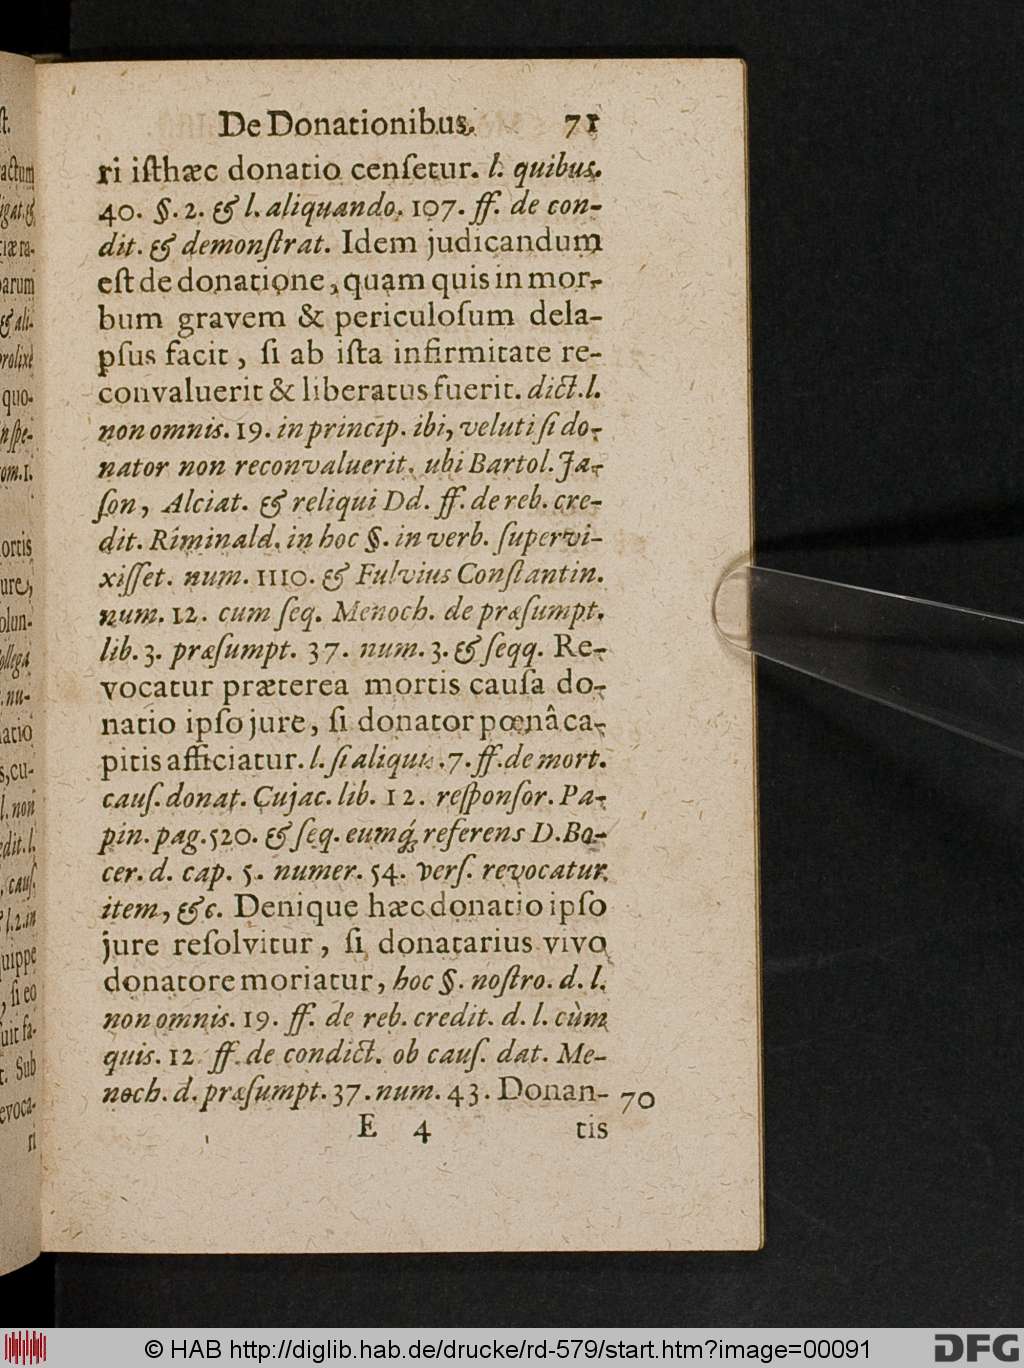 De Donationibus. 71
ri isthæc donatio censetur. l. quibus.
40. §. 2. & l. aliquando. 107. ff. de con-
dit. & demonstrat. Idem judicandum
est de donatione, quam quis in mor-
bum gravem & periculosum dela-
psus facit, si ab ista infirmitate re-
convaluerit & liberatus fuerit. dict. l.
non omnis. 19. in princip. ibi, veluti si do-
nator non reconvaluerit. ubi Bartol. Ja-
son, Alciat. & reliqui Dd. ff. de reb. cre-
dit. Riminald. in hoc §. in verb. supervi-
xisset. num. 1110. & Fulvius Constantin.
num. 12. cum seq. Menoch. de præsumpt.
lib. 3. præsumpt. 37. num. 3. & seqq. Re-
vocatur præterea mortis causa do-
natio ipso jure, si donator pœnâ ca-
pitis afficiatur. l. si aliquis. 7. ff. de mort.
caus. donat. Cujac. lib. 12. responsor. Pa-
pin. pag. 520. & seq. eumq́; referens D. Bo-
cer. d. cap. 5. numer. 54. vers. revocatur
item, &c. Denique hæc donatio ipso
jure resolvitur, si donatarius vivo
donatore moriatur, hoc §. nostro. d. l.
non omnis. 19. ff. de reb. credit. d. l. cùm
quis. 12 ff. de condict. ob caus. dat. Me-
noch. d. præsumpt. 37. num. 43. Donan- 70
E 4 tis
© HAB http://diglib.hab.de/drucke/rd-579/start.htm?image=00091
DFG